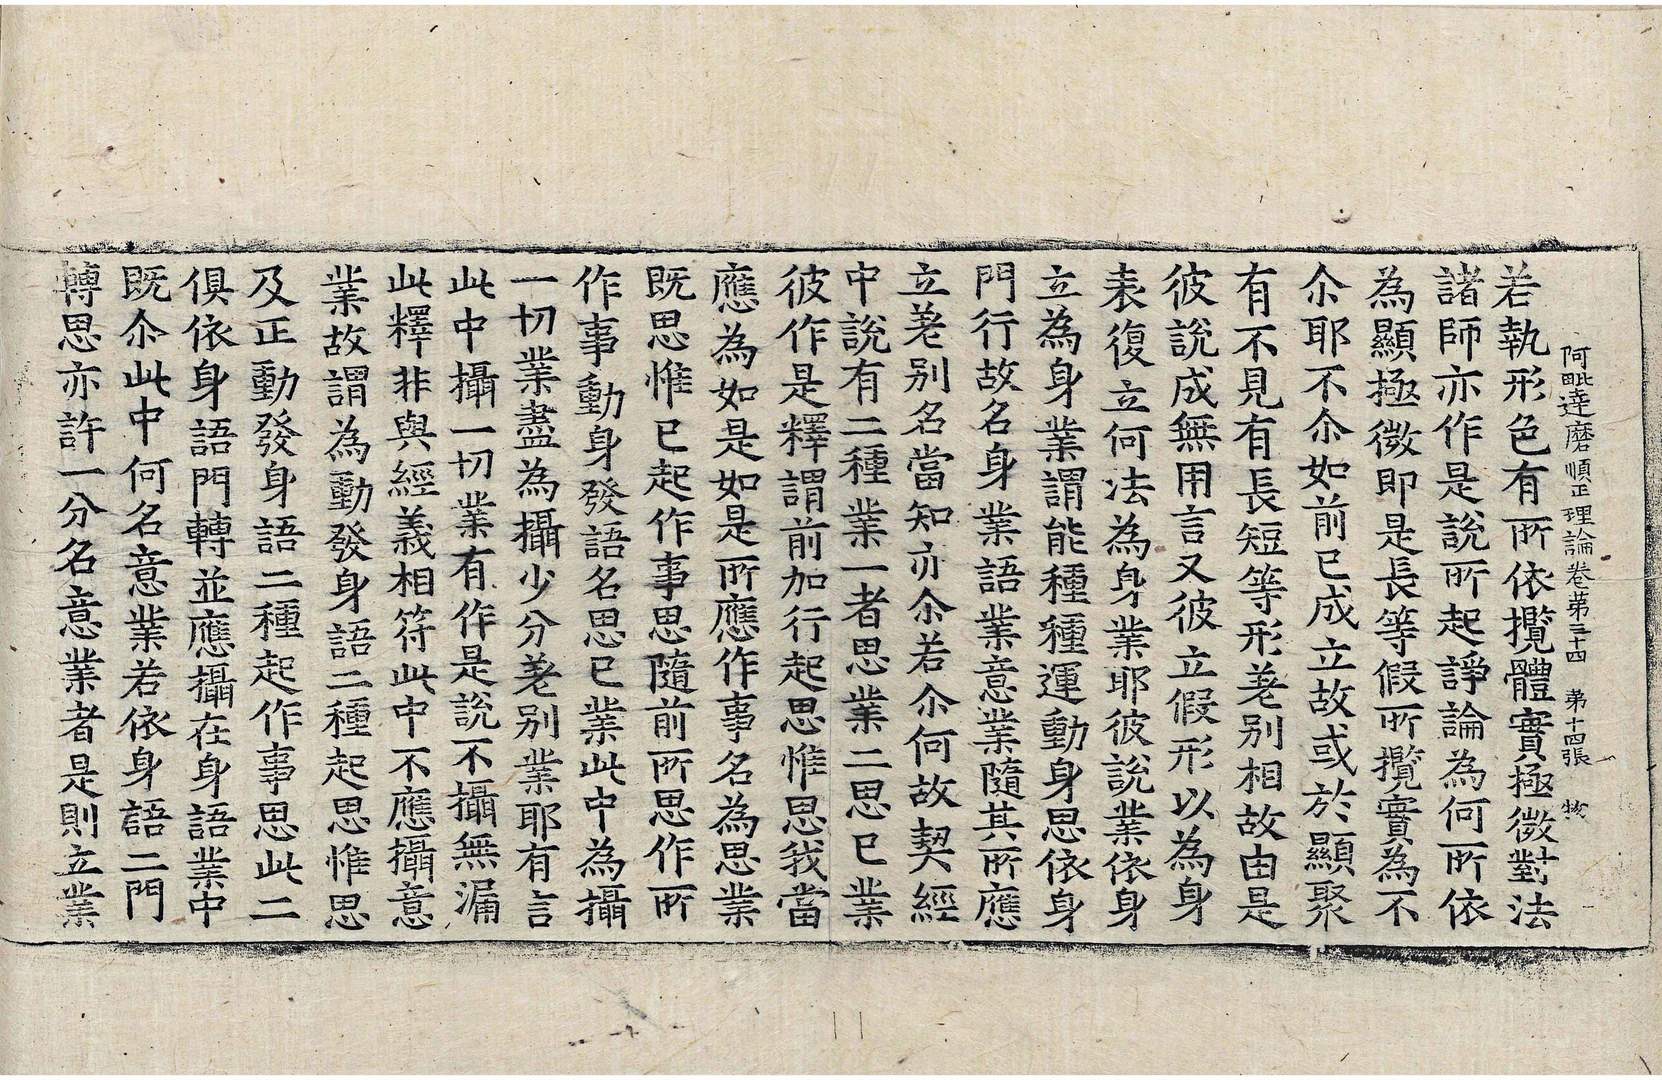 阿毗達磨順正理論卷第三十四 第十四張 物
若執形色有所依攬體實極微對法
諸師亦作是說所起諍論為何所依
為顯極微即是長等假所攬實為不
尒耶不尒如前已成立故或於顯聚
有不見有長短等形差别相故由是
彼說成無用言又彼立假形以為身
表復立何法為身業耶彼說業依身
立為身業謂能種種運動身思依身
門行故名身業語業意業隨其所應
立差别名當知亦尒若尒何故契經
中說有二種業一者思業二思已業
彼作是釋謂前加行起思惟思我當
應為如是如是所應作事名為思業
既思惟已起作事思隨前所思作所
作事動身發語名思已業此中為攝
一切業盡為攝少分差别業耶有言
此中攝一切業有作是說不攝無漏
此釋非與經義相符此中不應攝意
業故謂為動發身語二種起思惟思
及正動發身語二種起作事思此二
俱依身語門轉並應攝在身語業中
既尒此中何名意業若依身語二門
轉思亦許一分名意業者是則立業